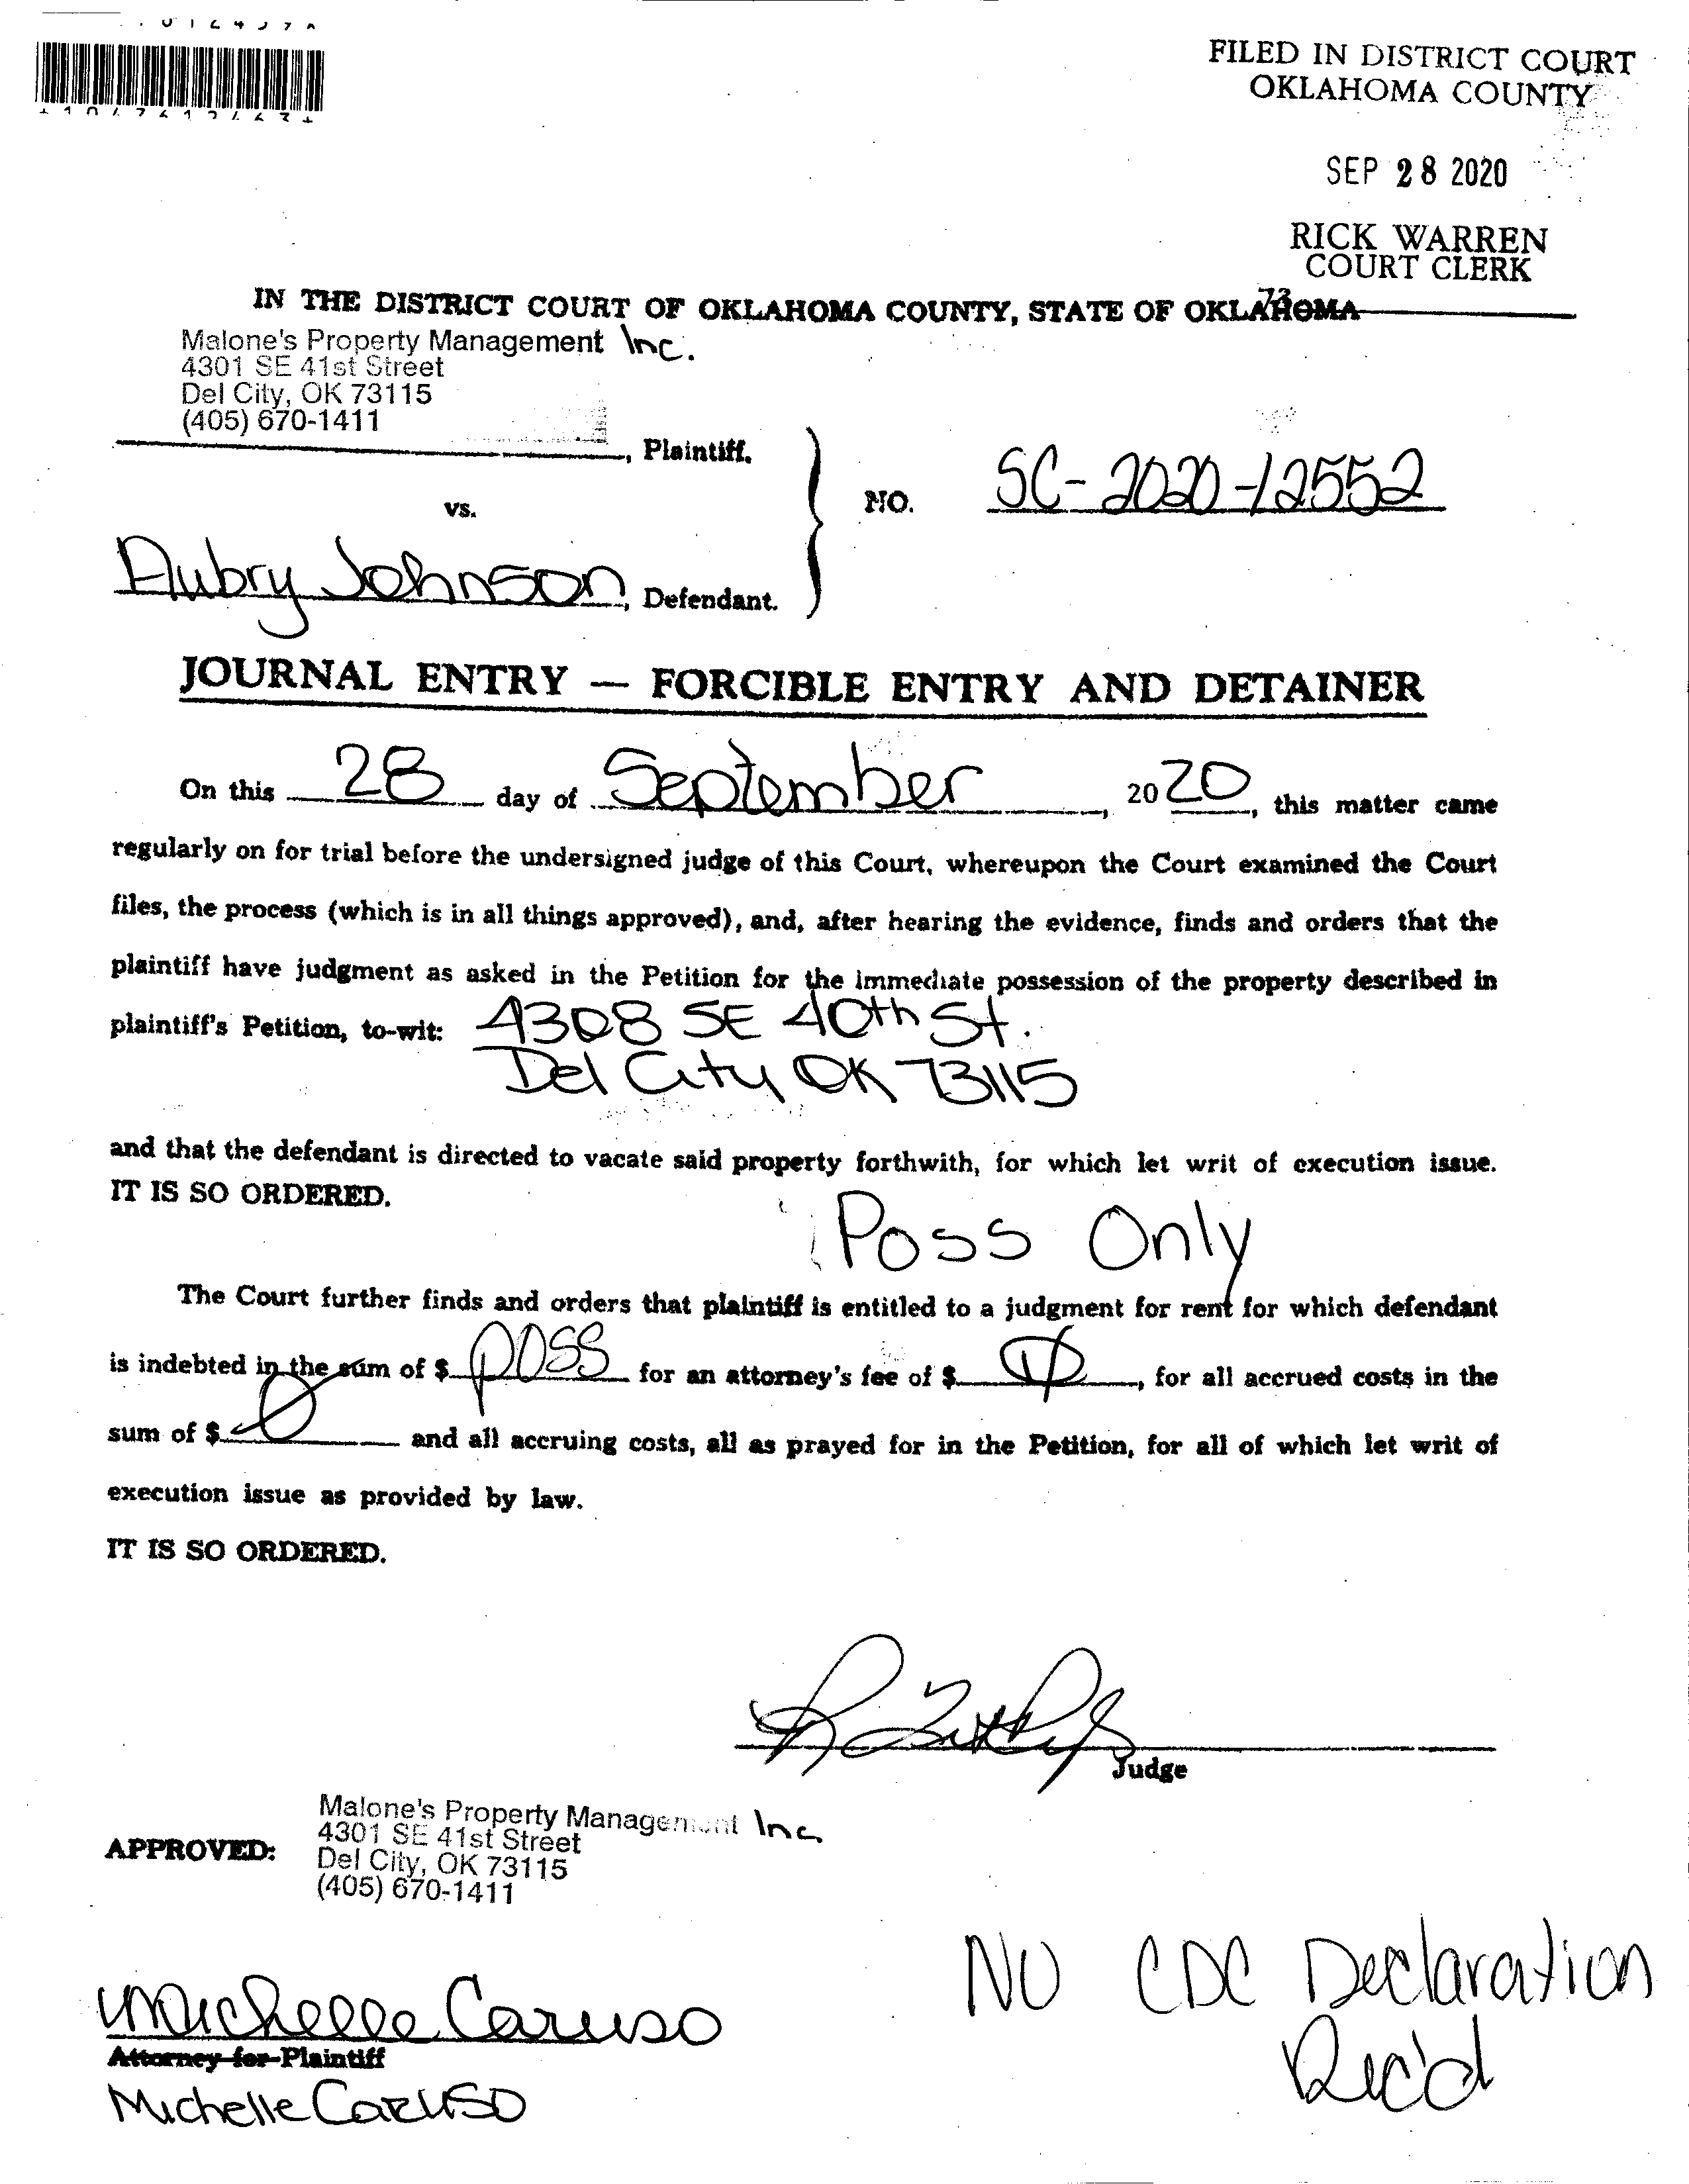 FILED IN DISTRICT COURT
OKLAHOMA COUNTY
SEP 28 2020
RICK WARREN
COURT CLERK
73
IN THE DISTRICT COURT OF OKLAHOMA COUNTY, STATE OF OKLAHOMA
Malone's Property Management Inc.
4301 SE 41st Street
Del City, OK 73115
(405) 670-1411
, Plaintiff,
vs.
NO. SC-2020-12552
Aubry Johnson, Defendant.
JOURNAL ENTRY — FORCIBLE ENTRY AND DETAINER
On this 28 day of September, 2020, this matter came
regularly on for trial before the undersigned judge of this Court, whereupon the Court examined the Court
files, the process (which is in all things approved), and, after hearing the evidence, finds and orders that the
plaintiff have judgment as asked in the Petition for the immediate possession of the property described in
plaintiff's Petition, to-wit: 4308 SE 40th St.
Del City OK 73115
and that the defendant is directed to vacate said property forthwith, for which let writ of execution issue.
IT IS SO ORDERED.
Poss Only
The Court further finds and orders that plaintiff is entitled to a judgment for rent for which defendant
is indebted in the sum of $ poss for an attorney's fee of $ , for all accrued costs in the
sum of $ and all accruing costs, all as prayed for in the Petition, for all of which let writ of
execution issue as provided by law.
IT IS SO ORDERED.
Judge
Malone's Property Management Inc
4301 SE 41st Street
APPROVED:
Del City, OK 73115
(405) 670-1411
No CDC Declaration
Rec'd
Michelle Caruso
Attorney for Plaintiff
Michelle Caruso